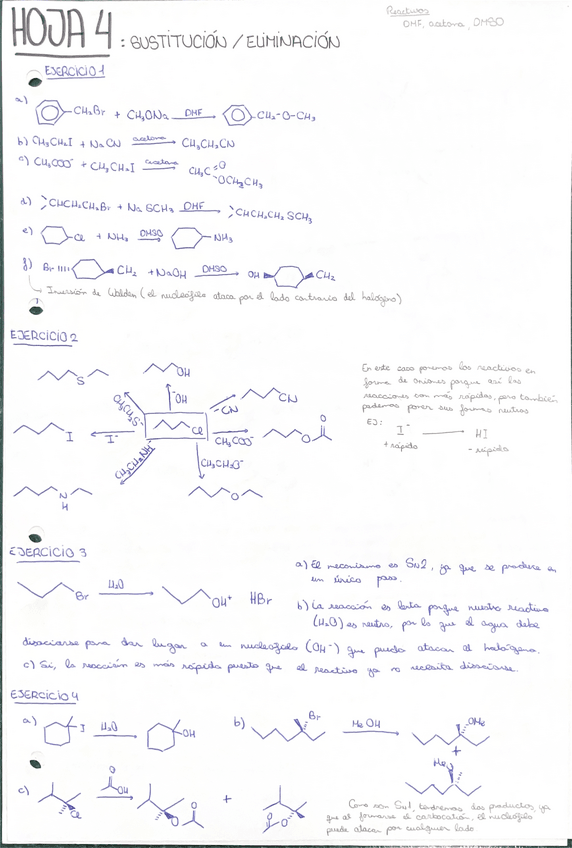 Reactivos
DMF, acetona, DMSO
HOJA 4 : SUSTITUCIÓN / ELIMINACIÓN
EJERCICIO 1
a) CH₂Br + CH₃ONa DMF CH₂-O-CH₃
b) CH₃CH₂I + NaCN acetona CH₃CH₂CN
c) CH₃COO⁻ + CH₃CH₂I acetona CH₃C O OCH₂CH₃
d) CHCH₂CH₂Br + NaSCH₃ DMF CHCH₂CH₂SCH₃
e) Cl + NH₃ DMSO NH₃
f) Br CH₂ + NaOH DMSO OH CH₂
Inversión de Walden (el nucleófilo ataca por el lado contrario del halógeno)
EJERCICIO 2
S OH CN
CH₃CH₂S⁻ ⁻OH ⁻CN
I I⁻ Cl CH₃COO⁻ O O
CH₃CH₂NH⁻ CH₃CH₂O⁻
N H O
En este caso ponemos los reactivos en
forma de aniones porque así las
reacciones son más rápidas, pero también
podemos poner sus formas neutras
EJ: I⁻ HI
+ rápido - rápido
EJERCICIO 3
Br H₂O OH⁺ HBr
a) El mecanismo es SN2, ya que se produce en
un único paso.
b) La reacción es lenta porque nuestro reactivo
(H₂O) es neutro, por lo que el agua debe
disociarse para dar lugar a un nucleófilo (OH⁻) que pueda atacar al halógeno.
c) Sí, la reacción es más rápida puesto que el reactivo ya no necesita disociarse.
EJERCICIO 4
a) I H₂O OH
b) Br MeOH OMe
+
c) Cl O OH O O + O O
Como son SN1, tendremos dos productos, ya
que al formarse el carbocatión, el nucleófilo
puede atacar por cualquier lado